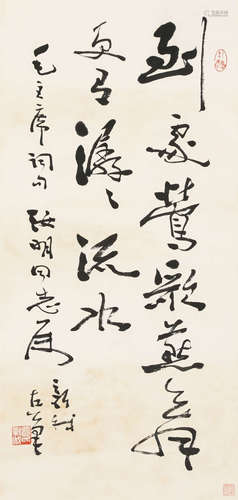 到处莺歌燕舞
更有潺潺流水
毛主席词句 张明同志属
新我左笔